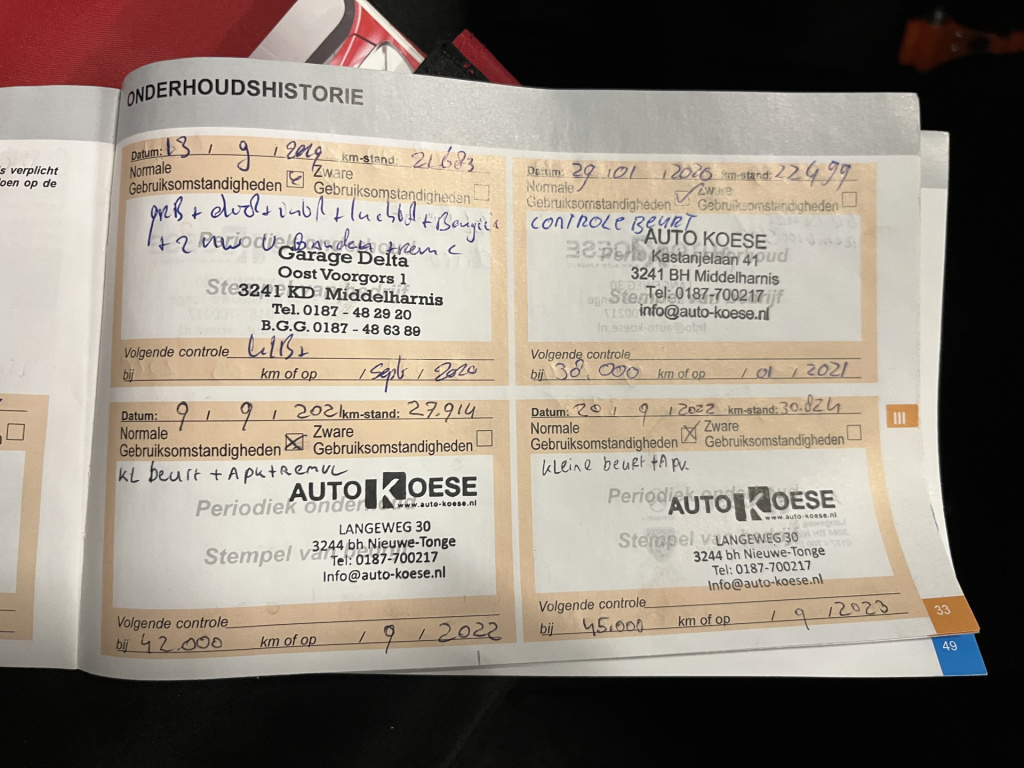 s verplicht
oen op de
ONDERHOUDSHISTORIE
Datum: 13 , 9 , 2019 km-stand: 21.683
Normale
Gebruiksomstandigheden
Zware
Gebruiksomstandigheden
+ luchtf + Bougie
+ 2 Banden + rem c
Periodiek
Stempel van bedrijf
Garage Delta
Oost Voorgors 1
3241 KD Middelharnis
Tel. 0187 - 48 29 20
B.G.G. 0187 - 48 63 89
Volgende controle
bij km of op , Sept , 2020
Datum: 29 , 01 , 2020 km-stand: 22499
Normale
Gebruiksomstandigheden
Zware
Gebruiksomstandigheden
CONTROLE BEURT
Periodiek onderhoud
Stempel van bedrijf
AUTO KOESE
Kastanjelaan 41
3241 BH Middelharnis
Tel: 0187-700217
info@auto-koese.nl
Volgende controle
bij 38.000 km of op , 01 , 2021
Datum: 9 , 9 , 2021 km-stand: 27.914
Normale
Gebruiksomstandigheden
Zware
Gebruiksomstandigheden
KL beurt + Apk + remvl
Periodiek onderhoud
Stempel van bedrijf
AUTO KOESE
www.auto-koese.nl
LANGEWEG 30
3244 bh Nieuwe-Tonge
Tel: 0187-700217
Info@auto-koese.nl
Volgende controle
bij 42.000 km of op , 9 , 2022
Datum: 20 , 9 , 2022 km-stand: 30.824
Normale
Gebruiksomstandigheden
Zware
Gebruiksomstandigheden
kleine beurt + Apk
Periodiek onderhoud
Stempel van bedrijf
AUTO KOESE
www.auto-koese.nl
LANGEWEG 30
3244 bh Nieuwe-Tonge
Tel: 0187-700217
Info@auto-koese.nl
Volgende controle
bij 45.000 km of op , 9 , 2023
III
33
49